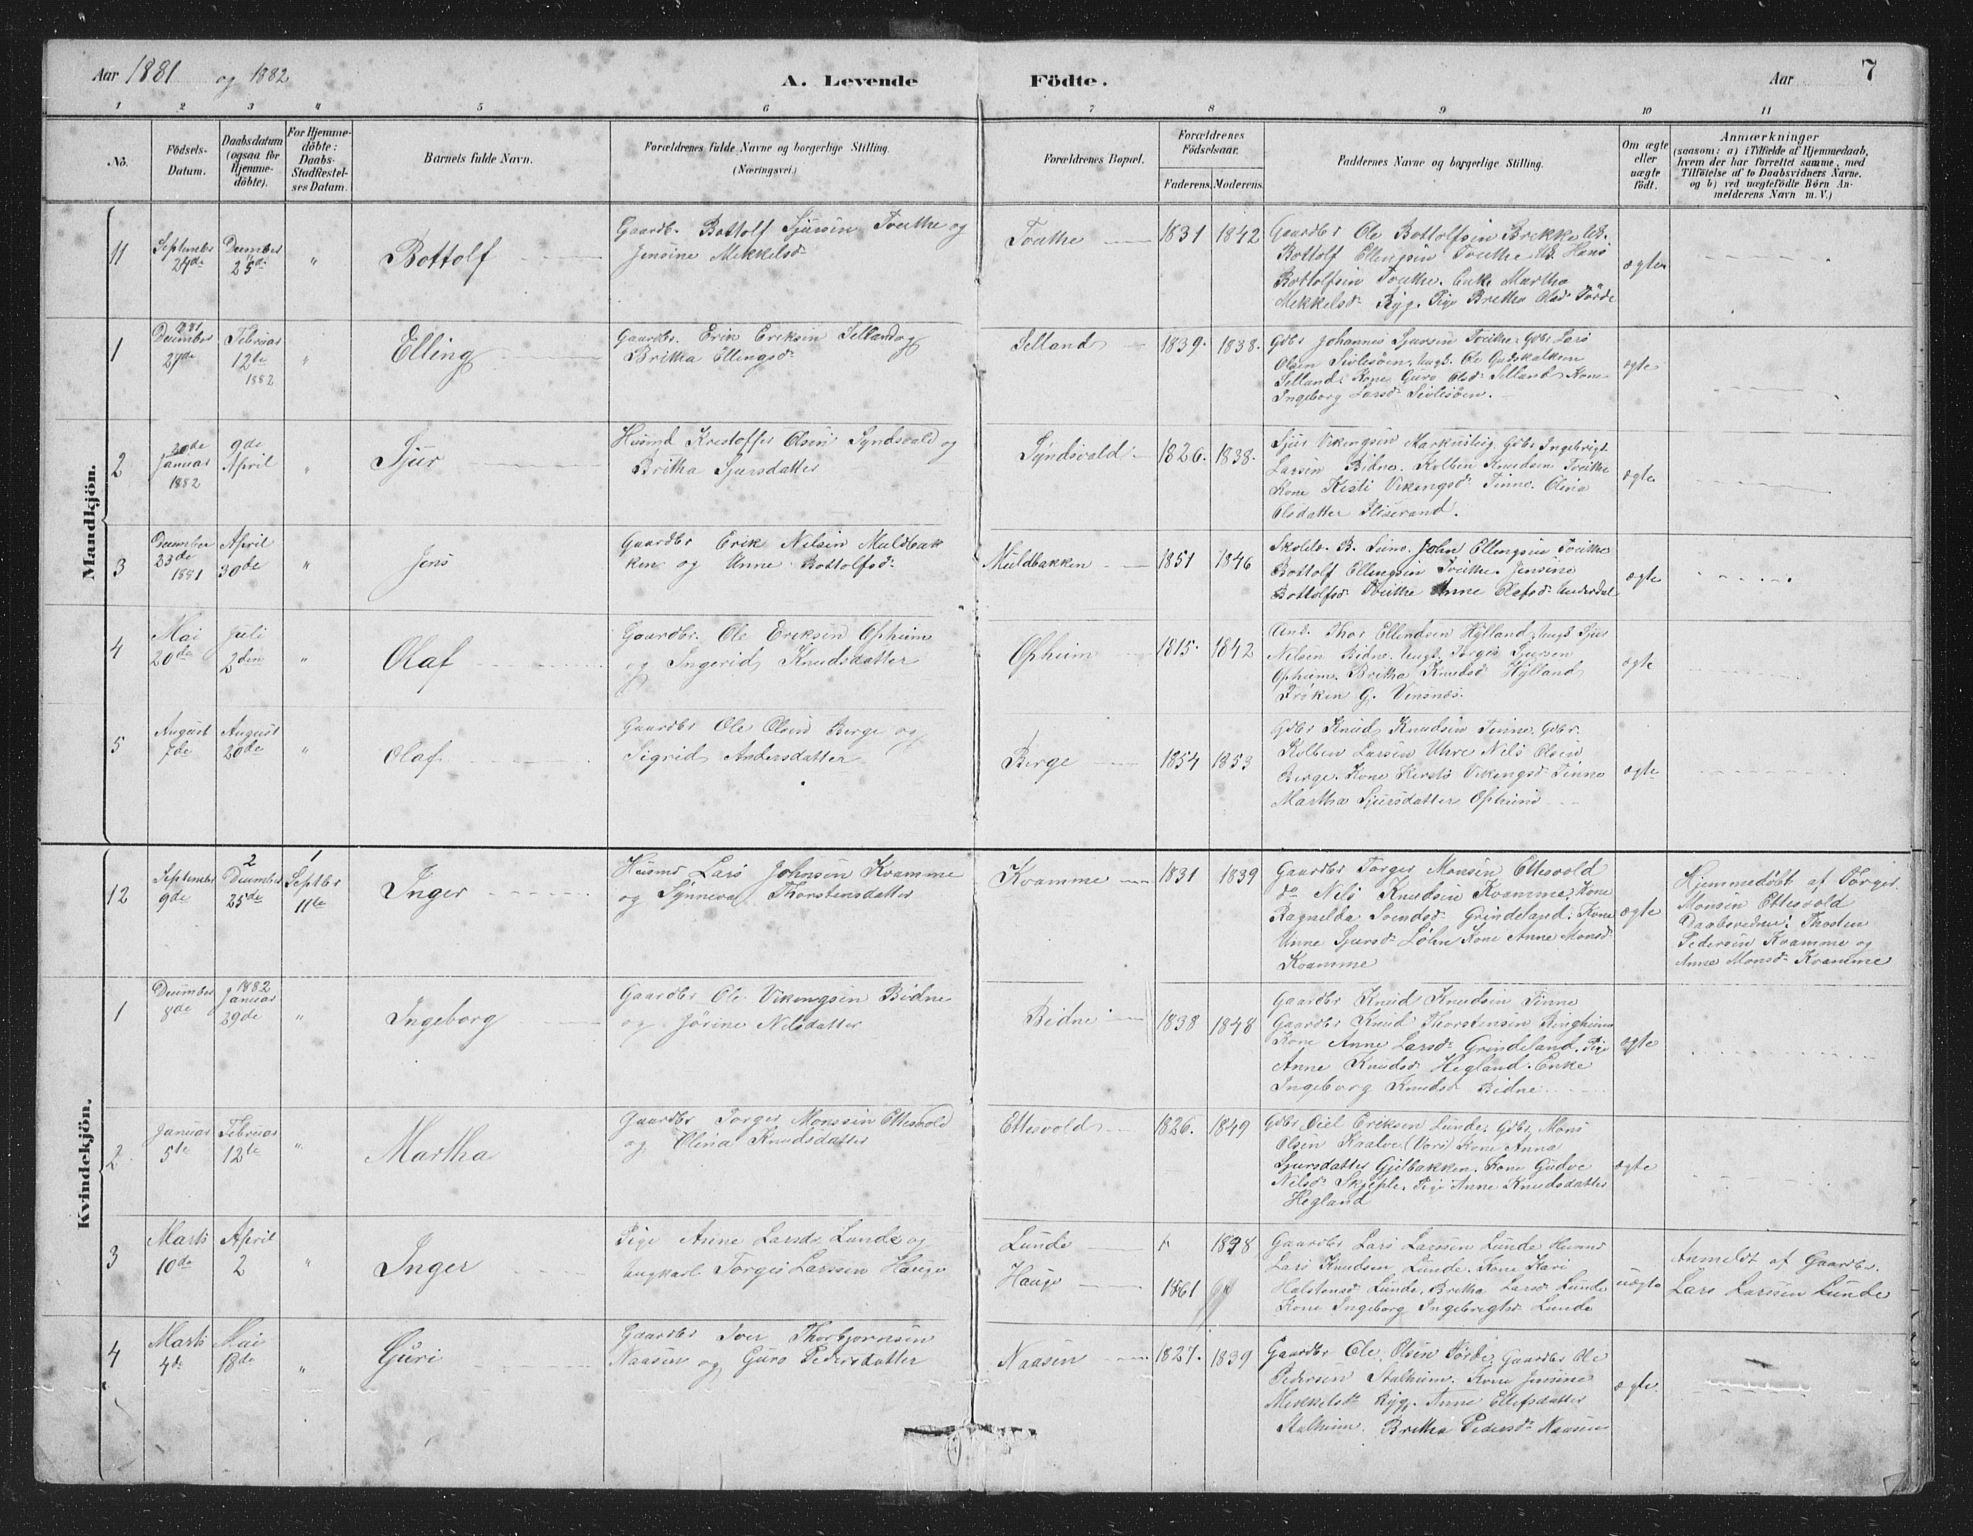 Aar 1881 og 1882
A. Levende Fødte.
Aar 7
1 2 3 4 5 6 7 8 9 10 11
No.
Fødsels-
Datum.
Daabsdatum
(ogsaa for
Hjemme-
døbte).
For Hjemme-
døbte:
Daabs-
Stadfæstel-
ses Datum.
Barnets fulde Navn.
Forældrenes fulde Navne og borgerlige Stilling.
(Næringsvei.)
Forældrenes Bopæl.
Forældrenes
Fødselsaar.
Faderens. Moderens.
Faddernes Navne og borgerlige Stilling.
Om ægte
eller
uægte
født.
Anmærkninger
(saasom: a) i Tilfælde af Hjemmedaab,
hvem der har forrettet samme, med
Tilføielse af to Daabsvidners Navne.
og b) ved uægtefødte Børn An-
melderens Navn m. V.)
Mandkjön.
11
September
24de
December
25de
"
Bottolf
Gaardb. Bottolf Sjursen Tvithe og
Jensine Mekkelsd
Tvithe
1831 1842
Gaardbr Ole Bottolfsen Brekke
Bottolf Ellingsen Tvithe Hans
Bottolfsen Tvithe. Enke Martha
Mekkelsd Ryg. Pige Britha Olsd Törde
ægte
1
1881
December
27de
Februar
12te
1882
"
Elling
Gaardbr. Erik Eriksen Selland og
Britha Ellingsd
Selland
1839. 1838.
Gdbr Johannes Sjursen Tvithe. Gdbr Lars
Olsen Sivlesöen. Ungk. Ole Gudskalksen
Selland. Kone Guro Olsd Selland Kone
Ingeborg Larsd Sivlesöen.
ægte
2
30de
Januar
1882
9de
April
"
Sjur
Husmd Kristoffer Olsen Syndsvold og
Britha Sjursdatter
Syndsvold
1826. 1838.
Sjur Vikingsen Gdbr Ingebrigt
Larsen Bidne. Kolben Knudsen Tvithe
Kone Kesti Vikingsd Tinne. Olina
Olsdatter
ægte
3
December
23de
1881
April
30de
"
Jens
Gaardbr Erik Nilsen Muldbak
ken og Anne Bottolfsd
Muldbakken
1851 1846
John Ellingsen Tvithe
Bottolf Ellingsen Tvithe. Jensine
Bottolfsd Tvithe Anne Olafsd Underdal
ægte
4
Mai
20de
Juli
2den
"
Olaf
Gaardbr. Ole Eriksen Opheim
og Ingerid Knudsdatter
Opheim
1815. 1842
Thor Ellendsen Hylland, Ungk Sjur
Nilsen Bidne. Ungk. Torgis Sjursen
Opheim. Britha Knudsd Hylland
Fröken G. Vinsnes.
ægte
5
August
7de
August
20de
"
Olaf
Gaardbr Ole Olsen Berge og
Sigrid Andersdatter
Berge
1854 1853
Gdbr Knud Knudsen Tinne, Gdbr.
Kolben Larsen Uhre Nils Olsen
Berge. Kone Kersti Vikingsd Tinne
Martha Sjursdatter Opheim
ægte
Kvindekjön.
12
September
9de
2
December
25de
1
Septbr
11te
Inger
Husmd Lars Johnsen Kvamme
og Synneva Thorstensdatter
Kvamme
1831 1839
Gaardbr Torger Monsen Ettesvold
do Nils Knudsen Kvamme. Kone
Ragnilda Svendsd Grindeland. Kone
Anne Sjursd Löhn Kone Anne Monsd
Kvamme
ægte
Hjemmedöbt af Torger
Monsen Ettesvold
Daabsvidner: Thosten
Pedersen Kvamme og
Anna Monsd Kvamme
1
December
8de
1882
Januar
29de
"
Ingeborg
Gaardbr Ole Vikingsen Bidne
og Jörine Nilsdatter
Bidne
1838 1848
Gaardbr Knud Knudsen Tinne
Gaardbr Knud Thorstensen Ringheim
Kone Anne Larsd Grindeland. Pige
Anne Knudsd Hegland. Enke
Ingeborg Knudsd Bidne
ægte
2
Januar
5te
Februar
12te
"
Martha
Gaardbr Torger Monssen Ettesvold
og Olina Knudsdatter
Ettesvold
1826. 1849
Gdbr Eriksen Lunde, Gdbr. Mons
Olsen Kone Anna
Sjursdatter Gjelbakken. Kone Gudve
Nilsd Skjeple. Pige Anne Knudsdatter
Hegland
ægte
3
Marts
10de
April
2
"
Inger
Pige Anne Larsdr Lunde og
Ungkarl Torgis Larssen Hauge
Lunde
Hauge
1861
1838
Gaardbr Lars Larssen Lunde Husmd
Lars Knudsen Lunde. Kone Kari
Halstensd Lunde. Britha Larsd Lunde
Kone Ingeborg Ingebrigtsd Lunde
uægte
Anmeldt af Gaardbr.
Lars Larssen Lunde
4
Marts
4de
Mai
18de
"
Guri
Gaardbr Iver Thorbjörnsen
Naasen og Guro Pedersdatter
Naasen
1827. 1839
Gaardbr Ole Olsen Törde, Gaardbr Ole
Pedersen Stalheim. Kone Jensine
Mikkelsd Ryg. Anne Ellefsdatter
Stalheim. Britha Pedersd Naasen
ægte.